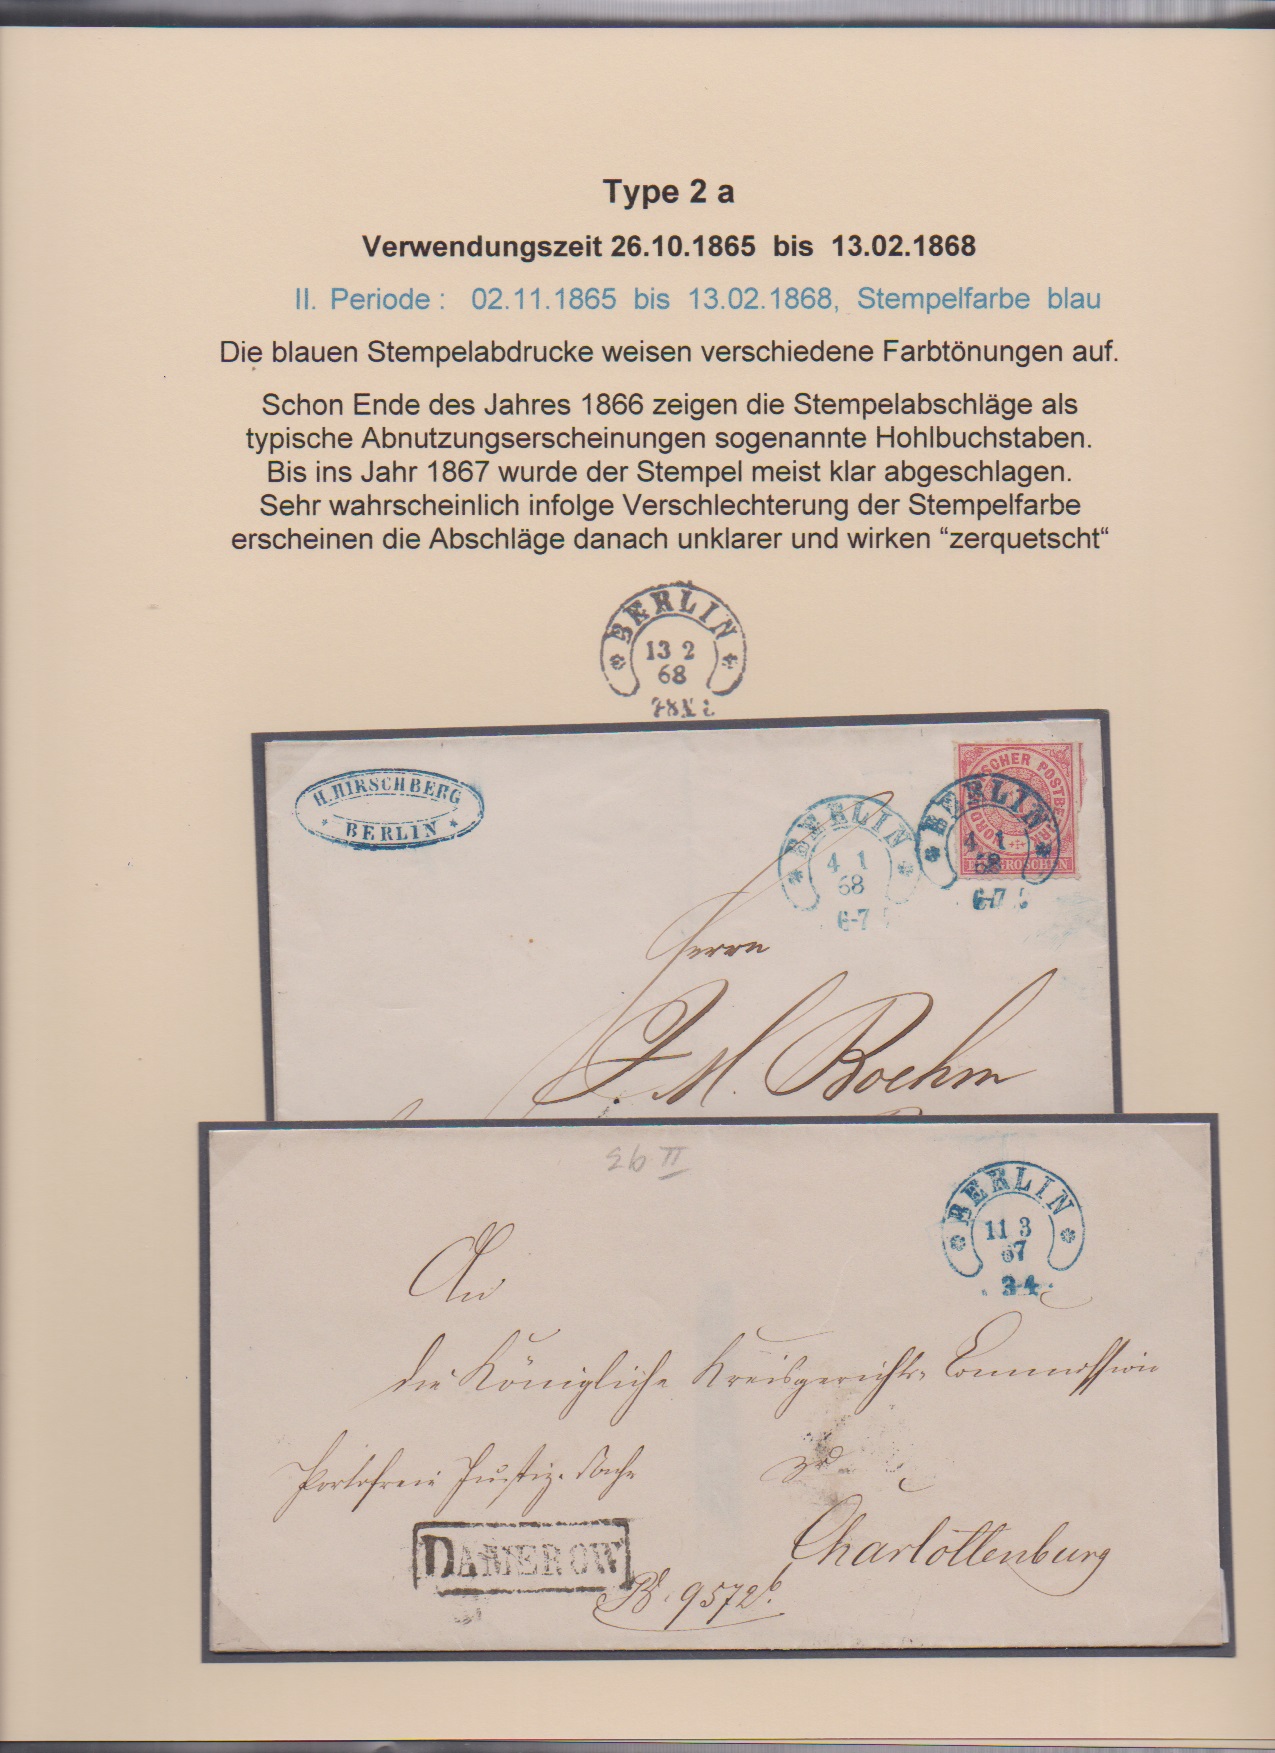 Type 2 a
Verwendungszeit 26.10.1865 bis 13.02.1868
II. Periode : 02.11.1865 bis 13.02.1868, Stempelfarbe blau
Die blauen Stempelabdrucke weisen verschiedene Farbtönungen auf.
Schon Ende des Jahres 1866 zeigen die Stempelabschläge als
typische Abnutzungserscheinungen sogenannte Hohlbuchstaben.
Bis ins Jahr 1867 wurde der Stempel meist klar abgeschlagen.
Sehr wahrscheinlich infolge Verschlechterung der Stempelfarbe
erscheinen die Abschläge danach unklarer und wirken “zerquetscht“
BERLIN
13 2
68
H. HIRSCHBERG
BERLIN
BERLIN
4 1
68
6-7
BERLIN
4 1
68
6-7
GROSCHEN
Herrn
J. M. Boehm
BERLIN
11 3
67
3-4
An
die Königliche Kreisgerichts-Commission
Portofreie Justiz-Sache
zu
Charlottenburg
DAMEROW
9572